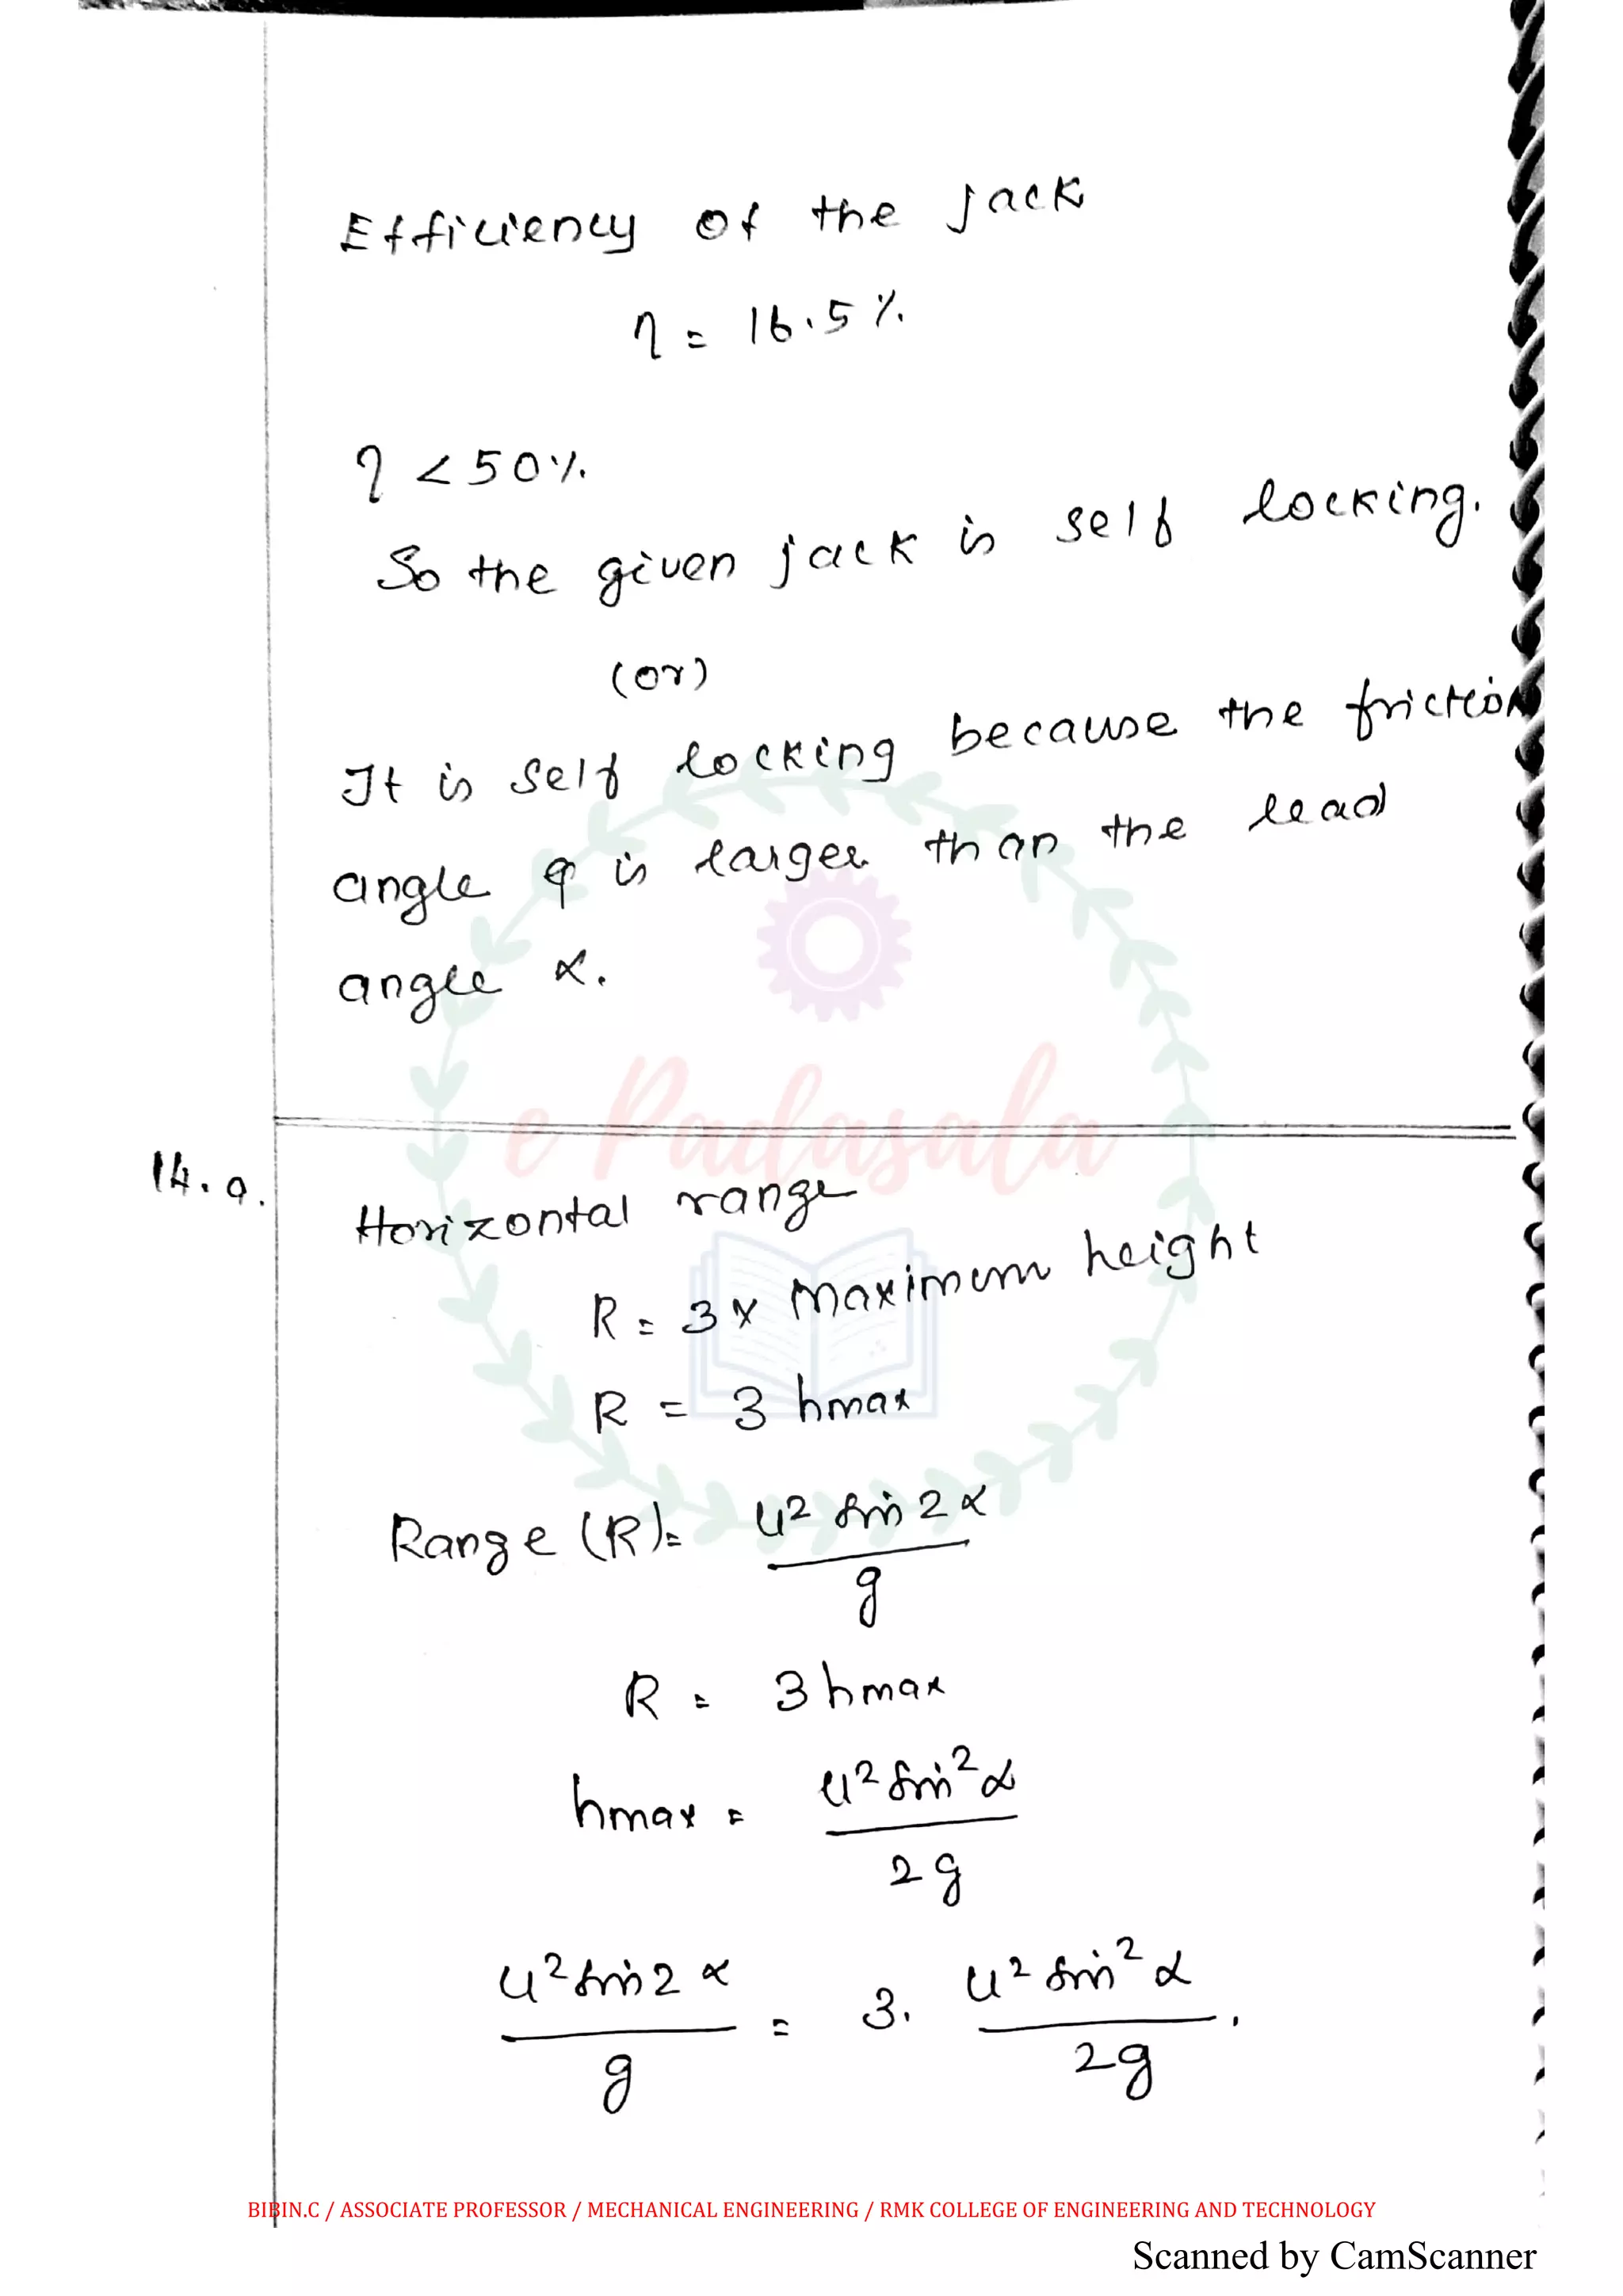 Efficiency of the jack
η = 16.5 %.
η < 50%.
So the given jack is self locking.
(or)
It is self locking because the friction
angle φ is larger than the lead
angle α.
e Padasala
14. a.
Horizontal range
R = 3 x Maximum height
R = 3 hmax
Range (R) = u² sin 2α / g
R = 3 hmax
hmax = u² sin² α / 2g
u² sin 2α / g = 3. u² sin² α / 2g .
BIBIN.C / ASSOCIATE PROFESSOR / MECHANICAL ENGINEERING / RMK COLLEGE OF ENGINEERING AND TECHNOLOGY
Scanned by CamScanner